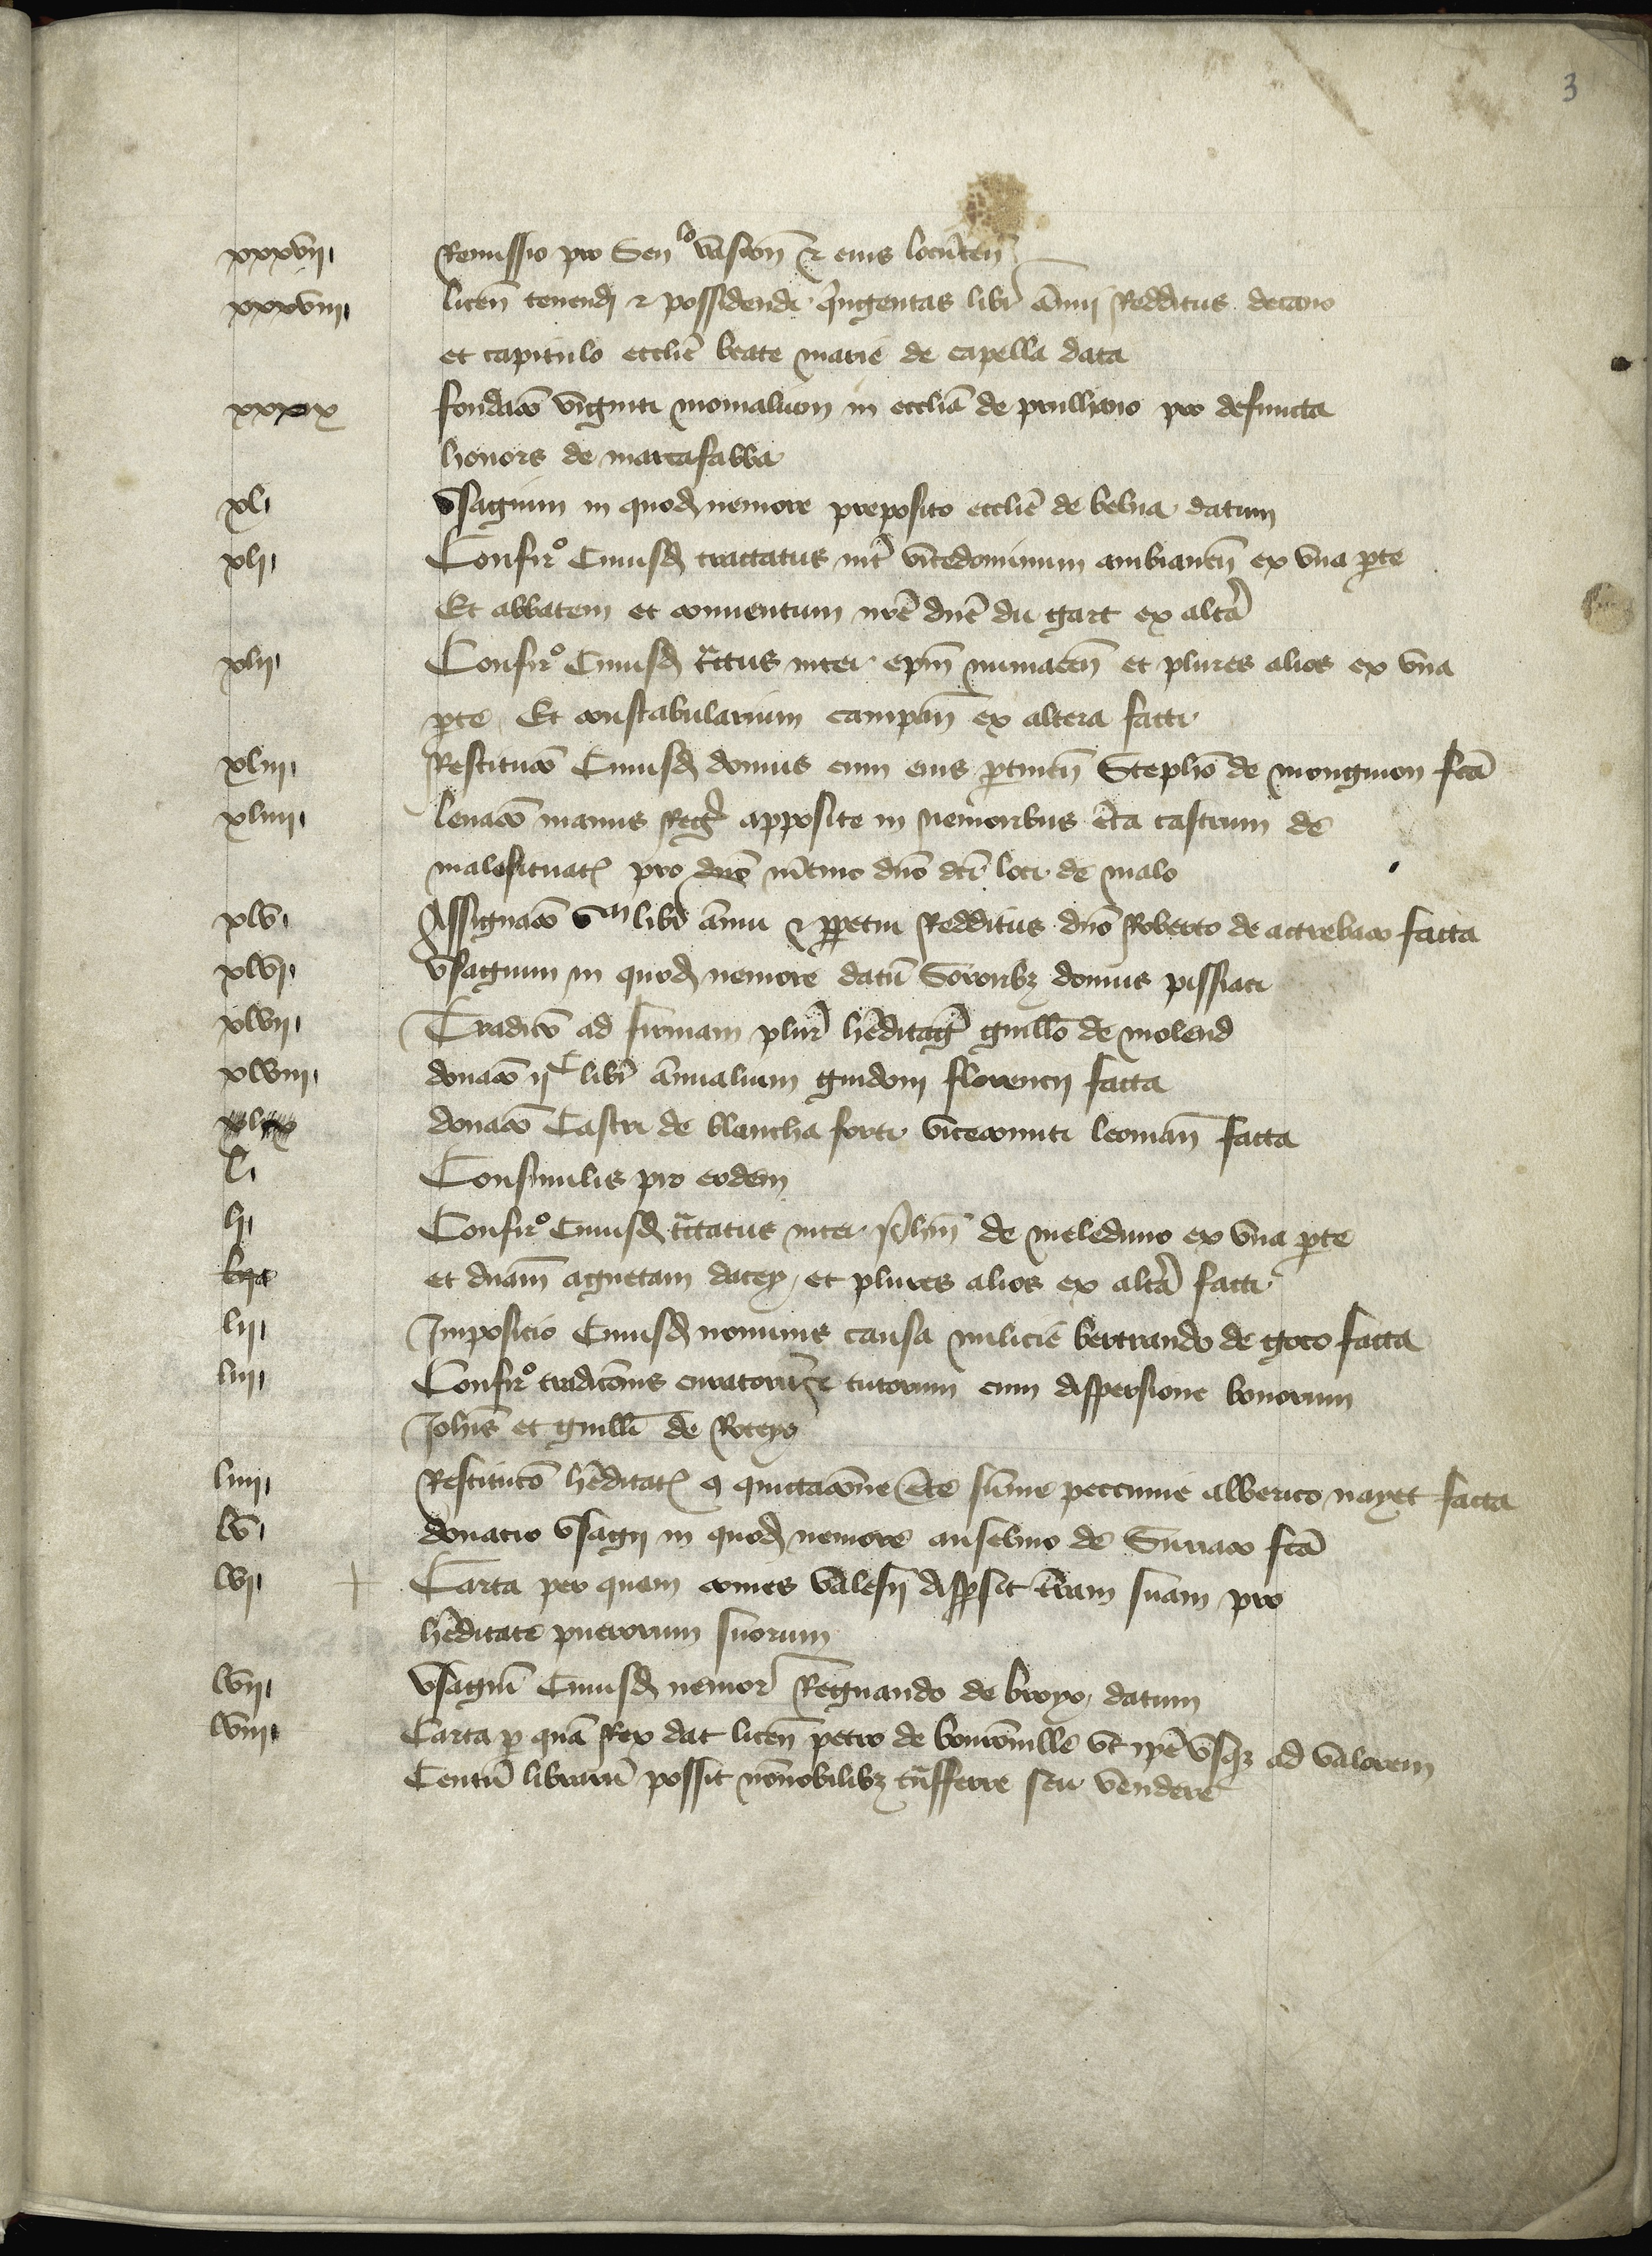 3
xxxvii Remissio pro Senlo vascon̄ & eius locūten̄
xxxviii licen̄ tenendi & possidendi qingentas libr̄ ānui Redditus decano
et capitulo ecclīe beate marie de capella data
xxxix fondacō viginti monialium in ecclīa de prulhano pro defuncta
honors de marcafabba
xl vsagium in quod nemore preposito ecclīe de belna datum
xli Confirº Cuiusd tractatus int̄ vicedominum ambianen̄ ex vna p̄te
Et abbatem et conuentum nr̄e dn̄e du gart ex alt̄a
xlii Confirº Cuiusd tc̄tus inter ep̄m nimacen̄ et plures alios ex vna
p̄te Et constabularium campan̄ ex altera facti
xliii Restitucō Cuiusd domus cum eius p̄tinen̄ Stepho de mongnion fc̄a
xliiii leuacō manus Reḡ apposite in nemoribus c̄ca castrum de
malo situat pro dn̄o dn̄o dc̄i loci de malo
xlv Assignacō vm libr̄ ānui & ꝑpetui Redditus dn̄o Roberto de attrebaco facta
xlvi vsagium in quod nemore datū Sororibz domus pissiaci
xlvii Tradicō ad firmam plur̄ h̄editaḡ guillo de molend
xlviii donacō iic libr̄ ānualium guidoni florencii facta
xlix donacō Castri de blancha forti vicecomiti leoman̄ facta
l Consimilis pro eodem
li Confirº Cuiusd tc̄tatus inter Joh̄m de meleduno ex vna p̄te
et dn̄am agnetam dacey et plures alios ex alt̄a facti
lii Imposicio Cuiusd nominis causa milicie bertrando de goto facta
liii Confirº tradicōnis curatorū & tutorum cum dispersione bonorum
Joh̄is et guill̄i de Roteys
liiii Restitucō h̄editat̄ & quittacōne c̄te sūme peccunie alberico nayet facta
lv donacio vsagii in quod nemore anselmo de Suriaco fc̄a
lvi + Carta per quam comes valesii disp̄sit t̄ram suam pro
h̄editate puerorum suorum
lvii vsagiū Cuiusd nemor̄ Regnando de broyo datum
lviii Carta p quā Rex dat licen̄ petro de bouconville vt ip̄e vsqz ad valorem
Centū librarū possit nōnobilibz t̄nsferre seu vendere